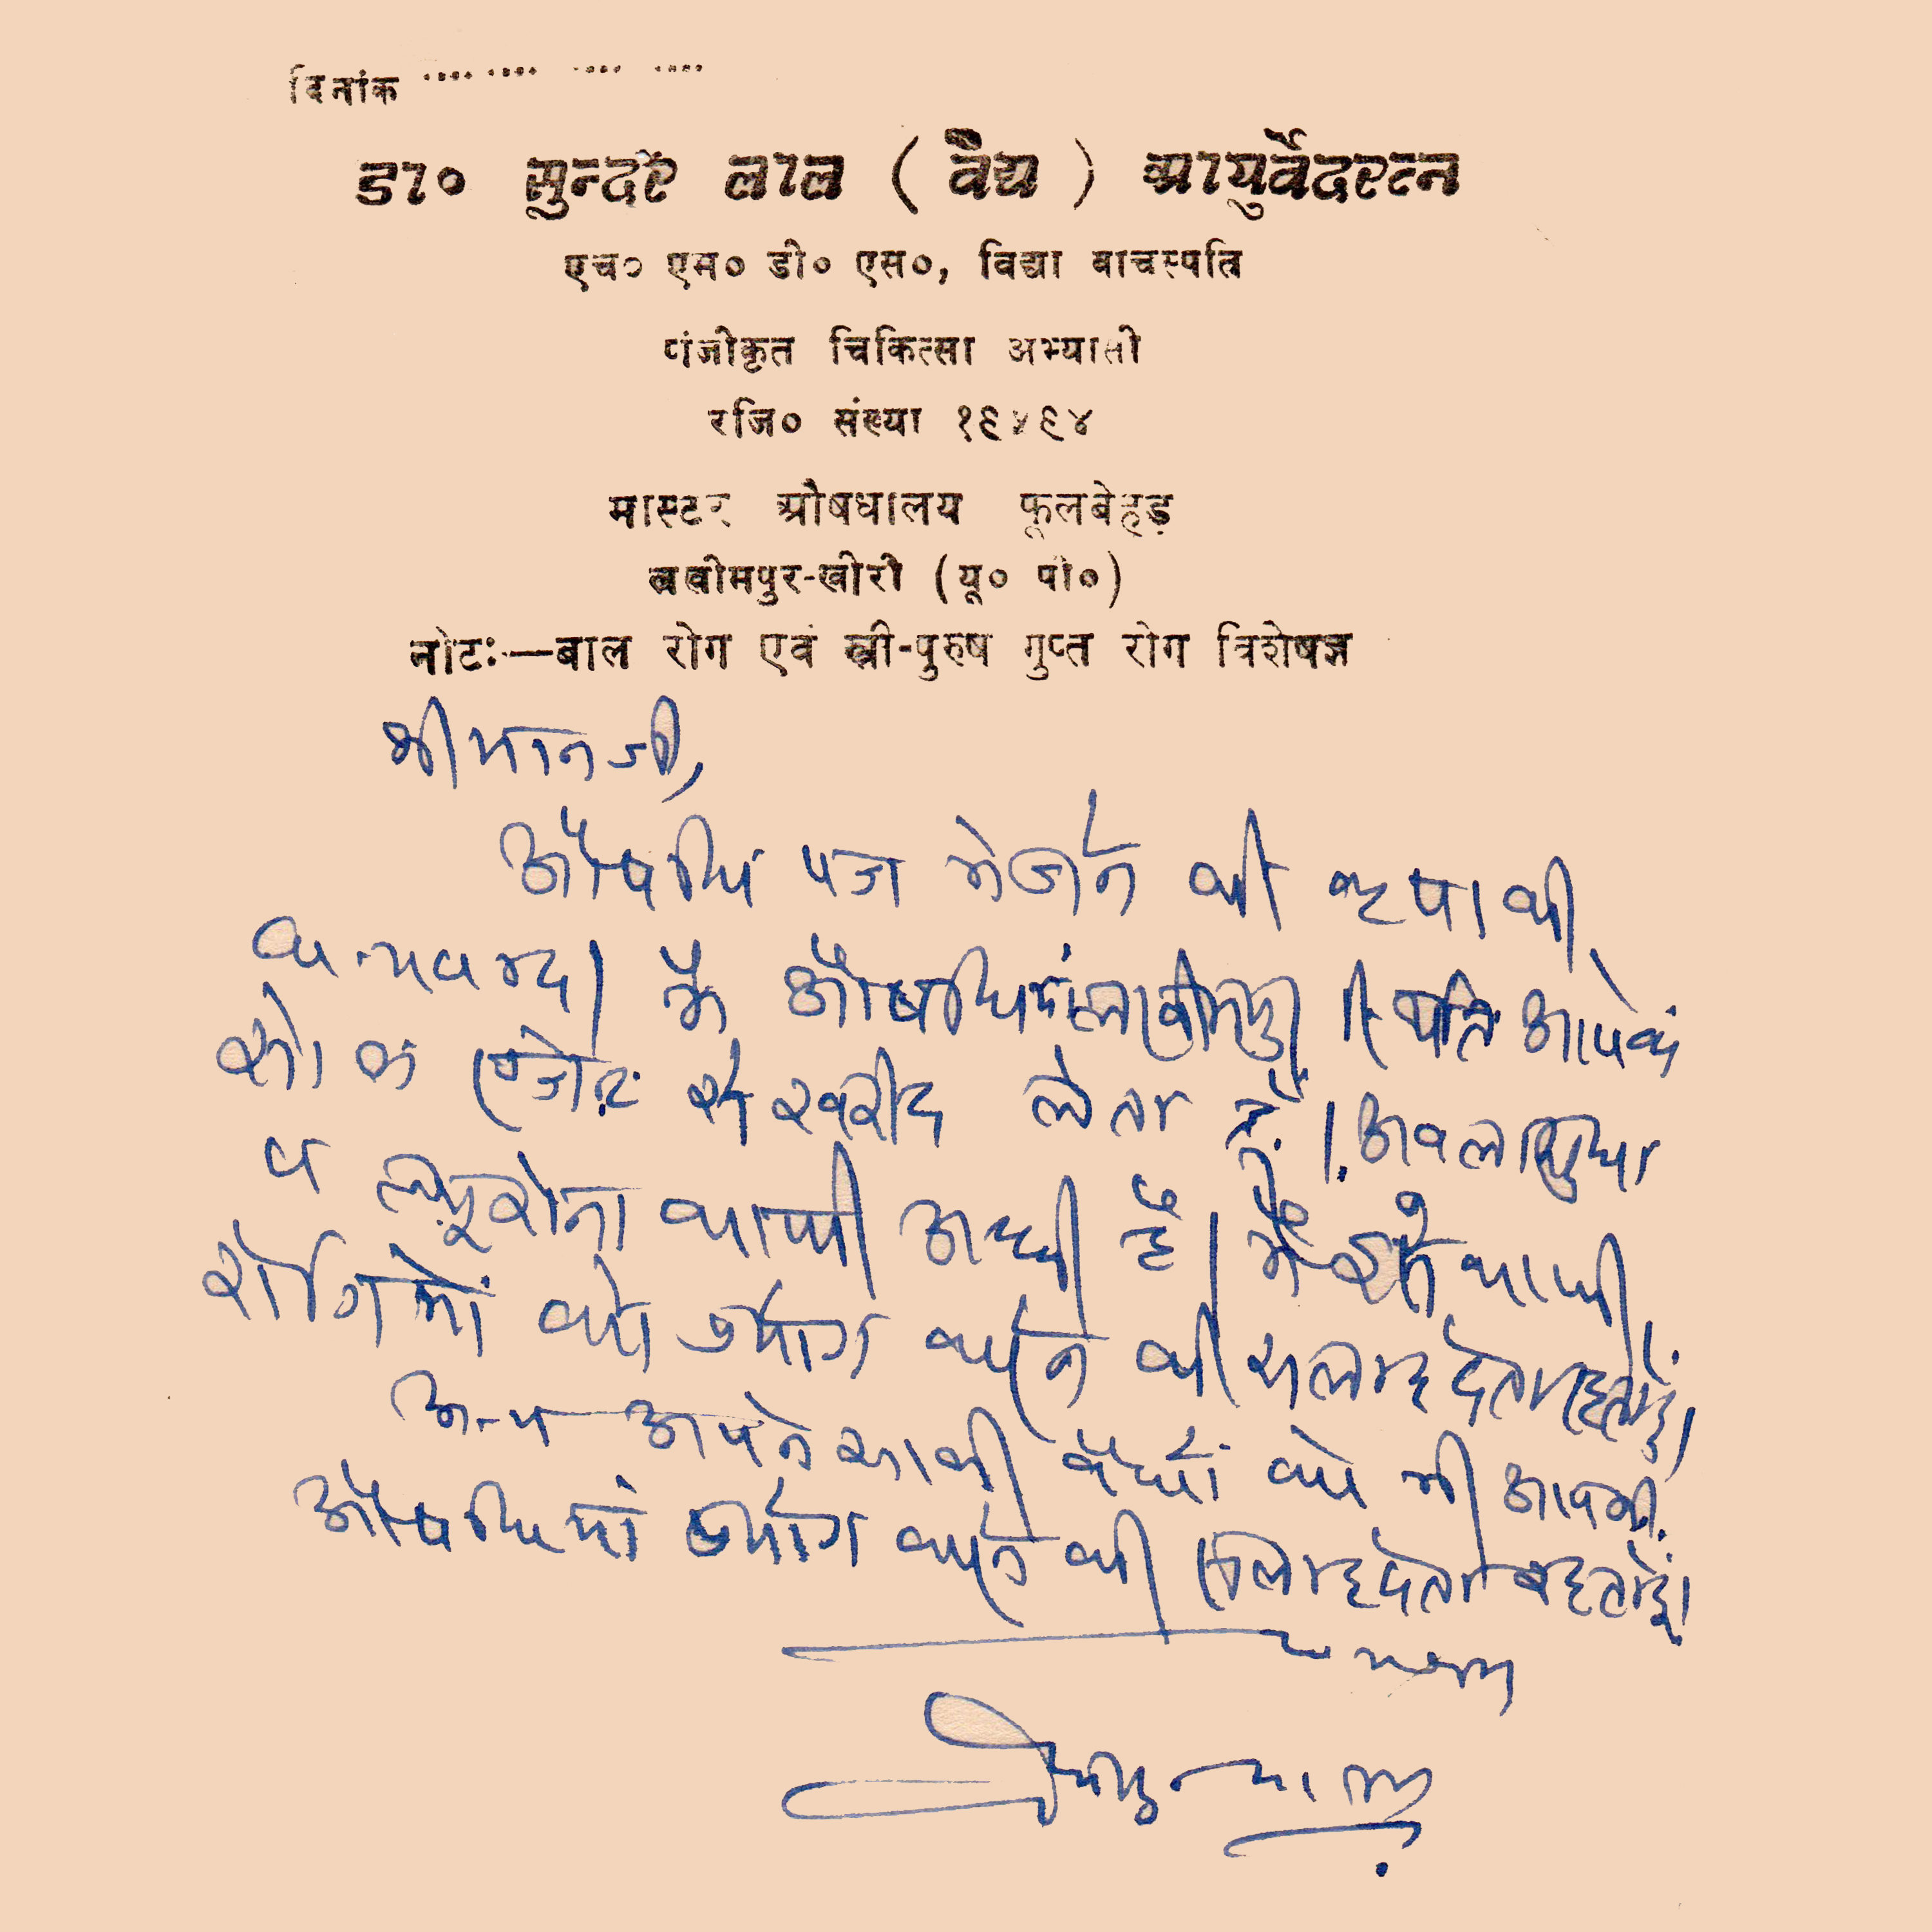 दिनांक .... .... .... ....
डा० सुन्दर लाल ( वैद्य ) आयुर्वेदरत्न
एच० एम० डी० एस०, विद्या वाचस्पति
पंजीकृत चिकित्सा अभ्यासी
रजि० संख्या १९५९४
मास्टर औषधालय फूलबेहड़
लखीमपुर-खीरी (यू० पी०)
नोटः—बाल रोग एवं स्त्री-पुरुष गुप्त रोग विशेषज्ञ
श्रीमान जी,
औषधि पत्र भेजने की कृपा की
धन्यवाद। मैं औषधि आपके
से खरीद लेता हूँ। अबलासुधा
व ल्यूकोना काफी अच्छी है। मैं काफी
रोगियों को उपयोग करने की सलाह देता रहता हूँ।
अन्य अपने साथी वैद्यों को भी आपकी
औषधियां उपयोग करने की सलाह देता रहता हूँ।